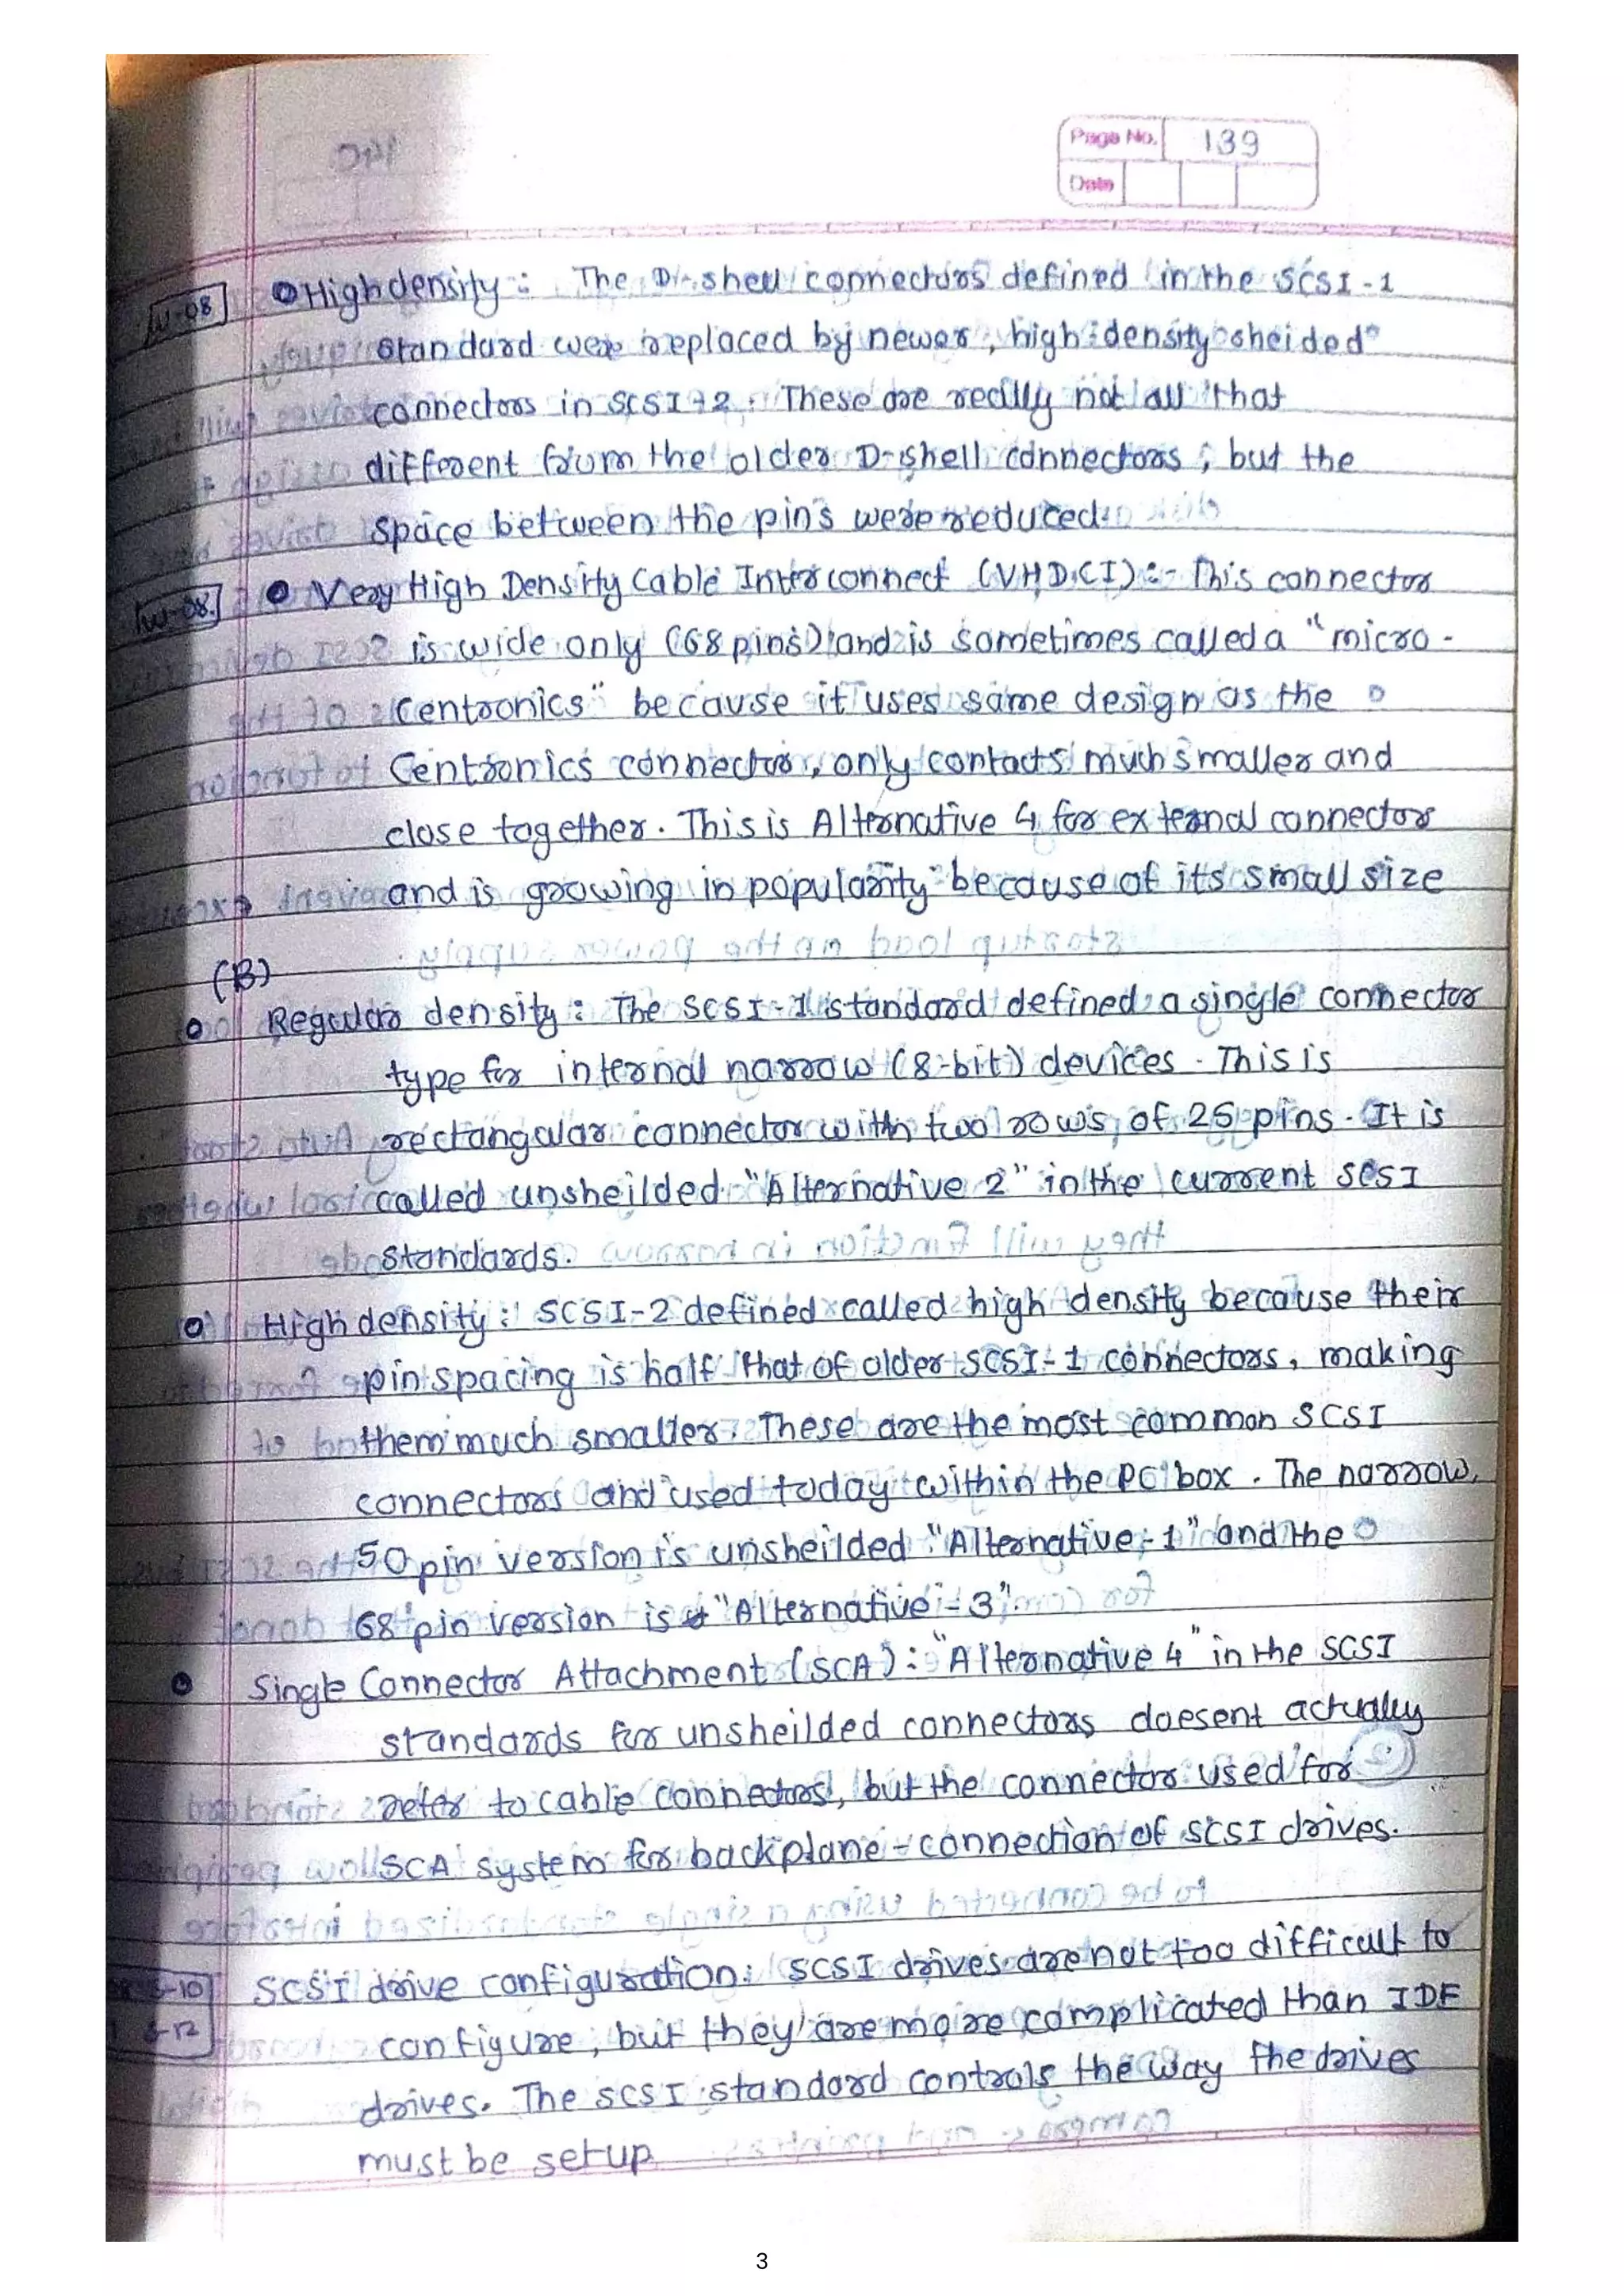 Page No. 139
Date
W-08 High density : The D-shell connectors defined in the SCSI-1
standard were replaced by newer, high-density sheided
connectors in SCSI-2. These are really not all that
different from the older D-shell connectors, but the
space between the pins were reduced.
W-08. Very High Density Cable Interconnect (VHDCI) :- This connector
is wide only (68 pins) and is sometimes called a "micro-
Centronics" because it uses same design as the
Centronics connector, only contacts much smaller and
close together. This is Alternative 4 for external connector
and is growing in popularity because of its small size
(B)
Regular density : The SCSI-1 standard defined a single connector
type for internal narrow (8-bit) devices. This is
rectangular connector with two rows of 25 pins. It is
called unsheilded "Alternative 2" in the current SCSI
standards.
High density : SCSI-2 defined called high density because their
pin spacing is half that of older SCSI-1 connectors, making
them much smaller. These are the most common SCSI
connectors and used today within the PC box. The narrow,
50 pin version is unsheilded "Alternative-1" and the
68 pin version is "Alternative-3".
Single Connector Attachment (SCA) : "Alternative 4" in the SCSI
standards for unsheilded connectors doesent actually
refer to cable connectors, but the connector used for
SCA system for backplane-connection of SCSI drives.
S-10 SCSI drive configuration: SCSI drives are not too difficult to
S-12 configure, but they are more complicated than IDE
drives. The SCSI standard controls the way the drives
must be setup
3